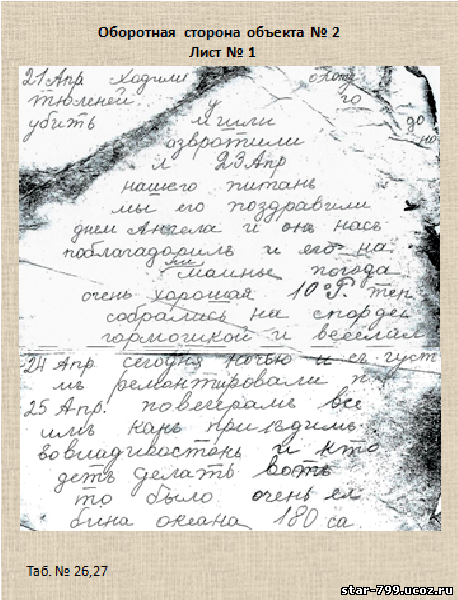 Оборотная сторона объекта № 2
Лист № 1
21 Апр ходили
тюленей у го
убить и шли до
озвротили но
и 23 Апр
нашего питань
мы его поздравили
днем Ангела и онъ насъ
поблагадорилъ и его на
маиные погода
очень хорошая 10° Р. теп
собрались на спордек
гормошкой и веселил
24 Апр сегодня ночью и съ густ
мъ ремонтировали
25 Апр. повечерамъ все
имъ какъ приъздимъ
вовладивостокъ и кто
детъ делать вотъ
то было очень ел
бина океана 180 са
Таб. № 26,27
star-799.ucoz.ru